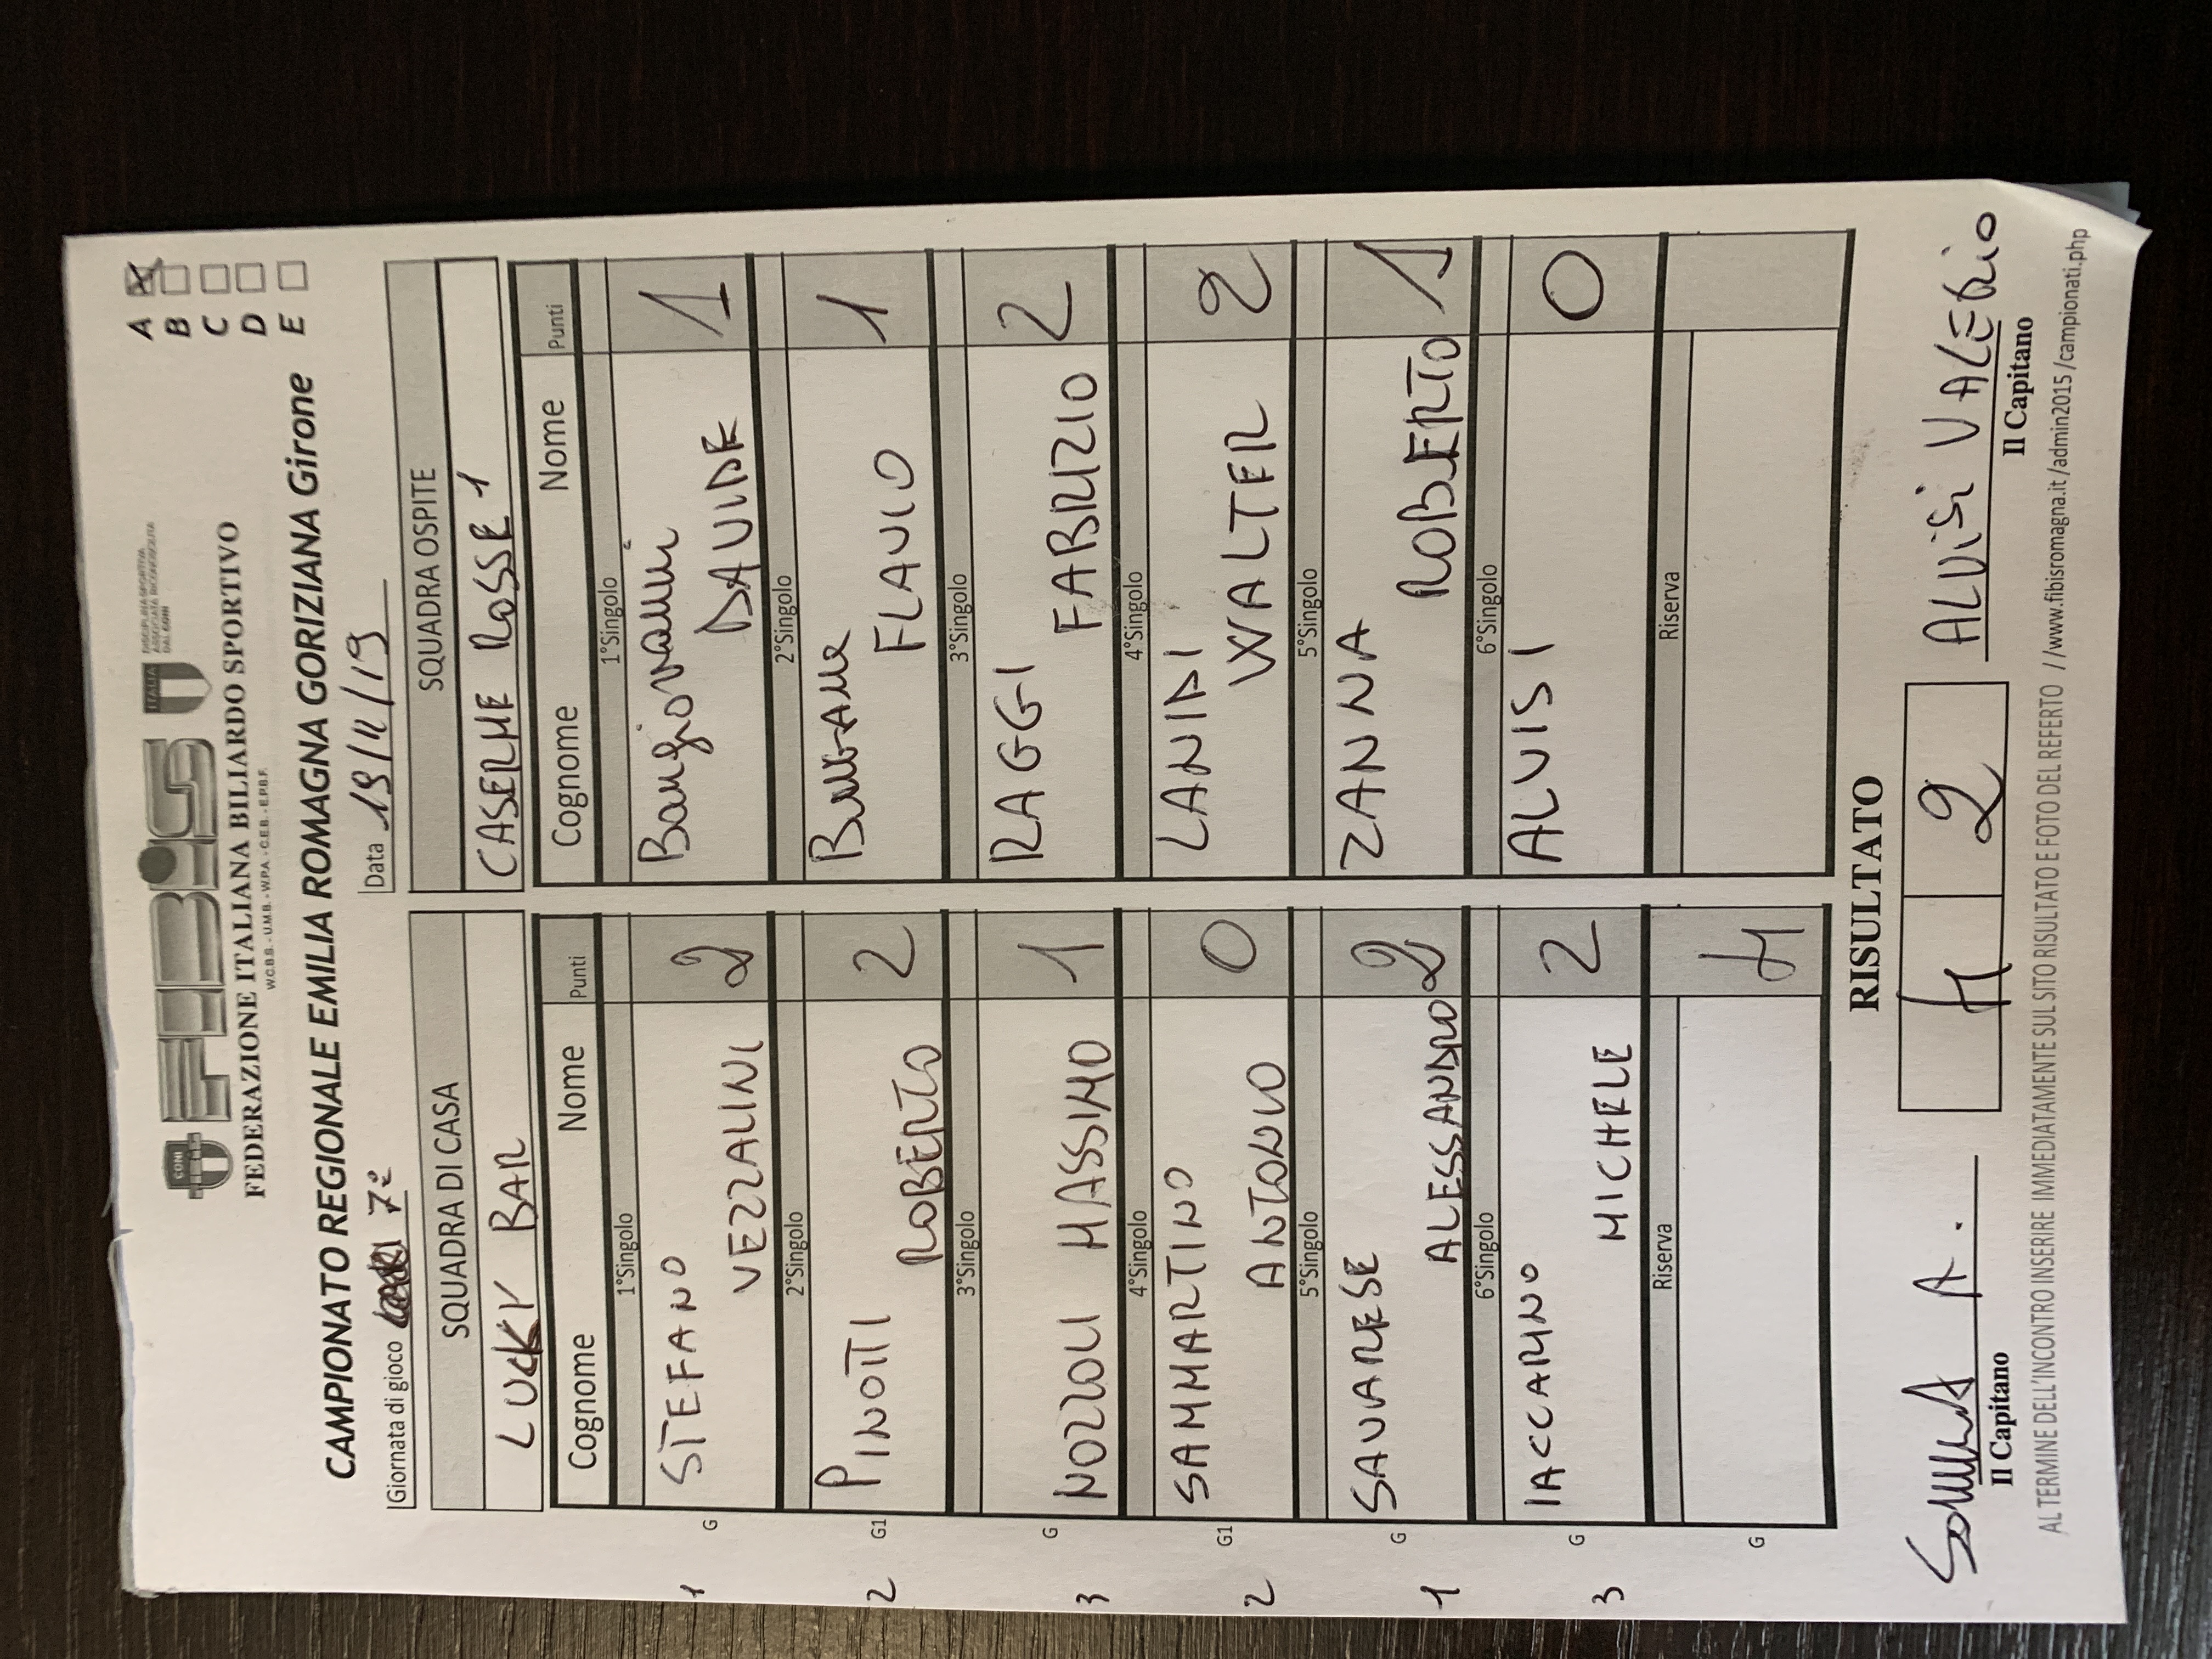 A
B
C
D
E
CONI
FIBiS
ITALIA
DISCIPLINA SPORTIVA
ASSOCIATA RICONOSCIUTA
DAL CONI
FEDERAZIONE ITALIANA BILIARDO SPORTIVO
W.C.B.S. - U.M.B. - W.P.A. - C.E.B. - E.P.B.F.
CAMPIONATO REGIONALE EMILIA ROMAGNA GORIZIANA Girone
Giornata di gioco 7° Data 19/11/19
SQUADRA DI CASA SQUADRA OSPITE
LUCKY BAR CASERME ROSSE 1
Cognome Nome Punti Cognome Nome Punti
1°Singolo 1°Singolo
1 G STEFANO VEZZALINI 2 Bongiovanni DAVIDE 1
2°Singolo 2°Singolo
2 G1 PINOTTI ROBERTO 2 FLAVIO 1
3°Singolo 3°Singolo
3 G NOZZOLI MASSIMO 1 RAGGI FABRIZIO 2
4°Singolo 4°Singolo
2 G1 SAMMARTINO ANTONIO 0 LANDI WALTER 2
5°Singolo 5°Singolo
1 G SAVARESE ALESSANDRO 2 ZANNA ROBERTO 1
6°Singolo 6°Singolo
3 G IACCARINO MICHELE 2 ALVISI 0
Riserva Riserva
G 4
RISULTATO
A. 4 2 ALVISI VALERIO
Il Capitano Il Capitano
AL TERMINE DELL'INCONTRO INSERIRE IMMEDIATAMENTE SUL SITO RISULTATO E FOTO DEL REFERTO //www.fibisromagna.it/admin2015/campionati.php